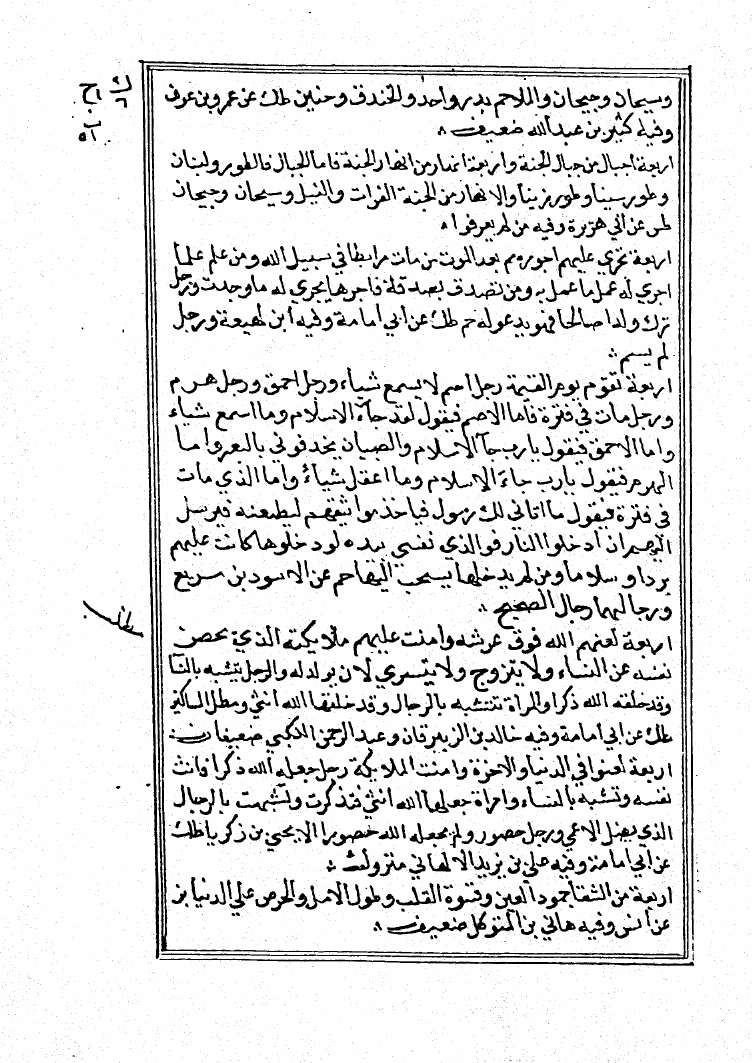 وسيحان وجيحان والملاحم بدر واحد والخندق وحنين طك عن عمرو بن عوف
وفيه كثير بن عبد الله ضعيف
اربعة اجبال من جبال الجنة واربعة انهار من انهار الجنة فاما الجبال فالطور ولبنان
وطور سينا وطور زيتا والانهار من الجنة الفرات والنيل وسيحان وجيحان
طس عن ابي هريرة وفيه من لم يعرفوا
اربعة تجري عليهم اجورهم بعد الموت من مات مرابطا في سبيل الله ومن علم علما
اجري له عمل ما عمل به ومن تصدق بصدقة فاجرها يجري له ما وجدت ورجل
ترك ولدا صالحا فهو يدعو له حم طك عن ابي امامة وفيه ابن لهيعة ورجل
لم يسم
اربعة تقوم يوم القيمة رجل اصم لا يسمع شياء ورجل احمق ورجل هرم
ورجل مات في فترة فاما الاصم فيقول لقد جآء الاسلام وما اسمع شياء
واما الاحمق فيقول يارب جآ الاسلام والصبيان يحذفوني بالبعر واما
الهرم فيقول يارب جاء الاسلام وما اعقل شياء واما الذي مات
في فترة فيقول ما اتاني لك رسول فياخذ مواثيقهم ليطيعنه فيرسل
اليهم ان ادخلوا النار فوالذي نفسي بيده لو دخلوها كانت عليهم
بردا وسلاما ومن لم يدخلها يسحب اليها حم عن الاسود بن سريع
ورجالهما رجال الصحيح
اربعة لعنهم الله فوق عرشه وامنت عليهم ملايكته الذي يحصن
نفسه عن النساء ولا يتزوج ولا يتسري لان يولد له والرجل يتشبه بالنسآ
وقد خلقه الله ذكرا والمراة تتشبه بالرجال وقد خلقها الله انثى ومطل المساكين
طك عن ابي امامة وفيه خالد بن الزبرقان وعبد الرحمن ضعيفان
اربعة لعنوا في الدنيا والاخرة وامنت الملايكة رجل جعله الله ذكرا فانث
نفسه وتشبه بالنساء وامراة جعلها الله انثى فتذكرت وتشبهت بالرجال
الذي يضل الاعمى ورجل حصور ولم يجعله الله حصورا الا يحيى بن زكريا طك
عن ابي امامة وفيه علي بن يزيد الالهاني متروك
اربعة من الشقا جمود العين وقسوة القلب وطول الامل والحرص علي الدنيا بز
عن انس وفيه هاني بن المتوكل ضعيف